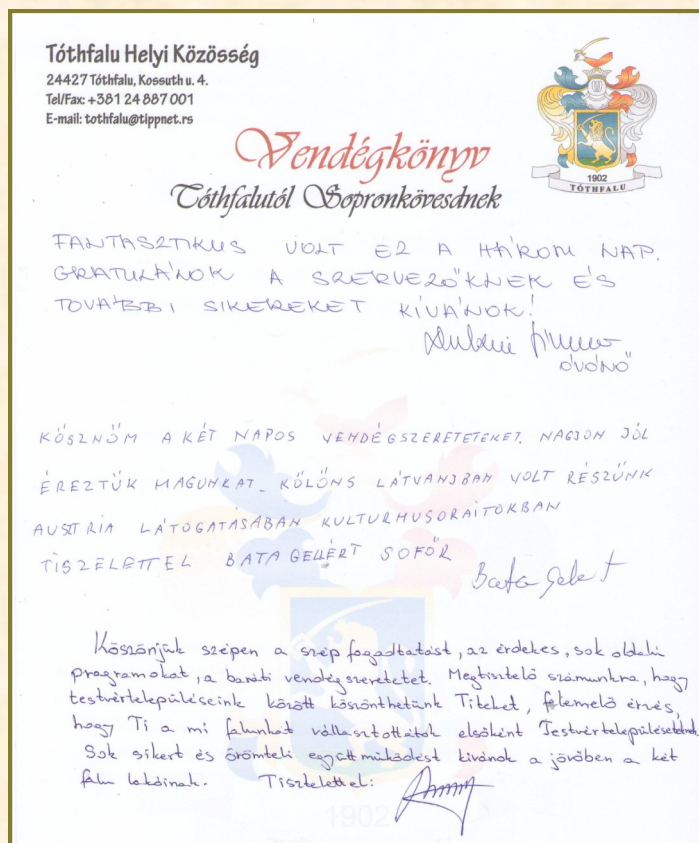 Tóthfalu Helyi Közösség
24427 Tóthfalu, Kossuth u. 4.
Tel/Fax: +381 24 887 001
E-mail: tothfalu@tippnet.rs
1902
TÓTHFALU
Vendégkönyv
Tóthfalutól Sopronkövesdnek
FANTASZTIKUS VOLT EZ A HÁROM NAP.
GRATULÁLOK A SZERVEZŐKNEK ÉS
TOVÁBBI SIKEREKET KÍVÁNOK!
ÓVÓNŐ
KÖSZNÖM A KÉT NAPOS VENDÉGSZERETETEKET. NAGJON JÓL
ÉREZTÜK MAGUNKAT. KÜLÖNS LÁTVANJBAN VOLT RÉSZÜNK
AUSZTRIA LÁTOGATÁSÁBAN KULTURMUSORAITOKBAN
TISZELETTEL BATA GELLÉRT SOFŐR
Bata
Köszönjük szépen a szép fogadtatást, az érdekes, sok oldalú
programokat, a baráti vendégszeretetet. Megtisztelő számunkra, hogy
testvértelepüléseink között köszönthetünk Titeket, felemelő érzés,
hogy Ti a mi falunkat választottátok elsőként Testvértelepülésetek
Sok sikert és örömteli együttműködést kívánok a jövőben a két
falu lakóinak. Tisztelettel:
1902